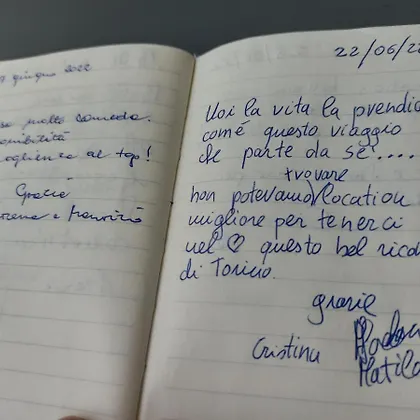 giugno 2022
molto comoda.
al top!
Grazie
e
22/06/22
Noi la vita la prendia
com'è questo viaggio
che parte da sé!....
trovare
non potevamo location
migliore per tenerci
nel ♡ questo bel rico
di Torino.
grazie
Cristina
Matild